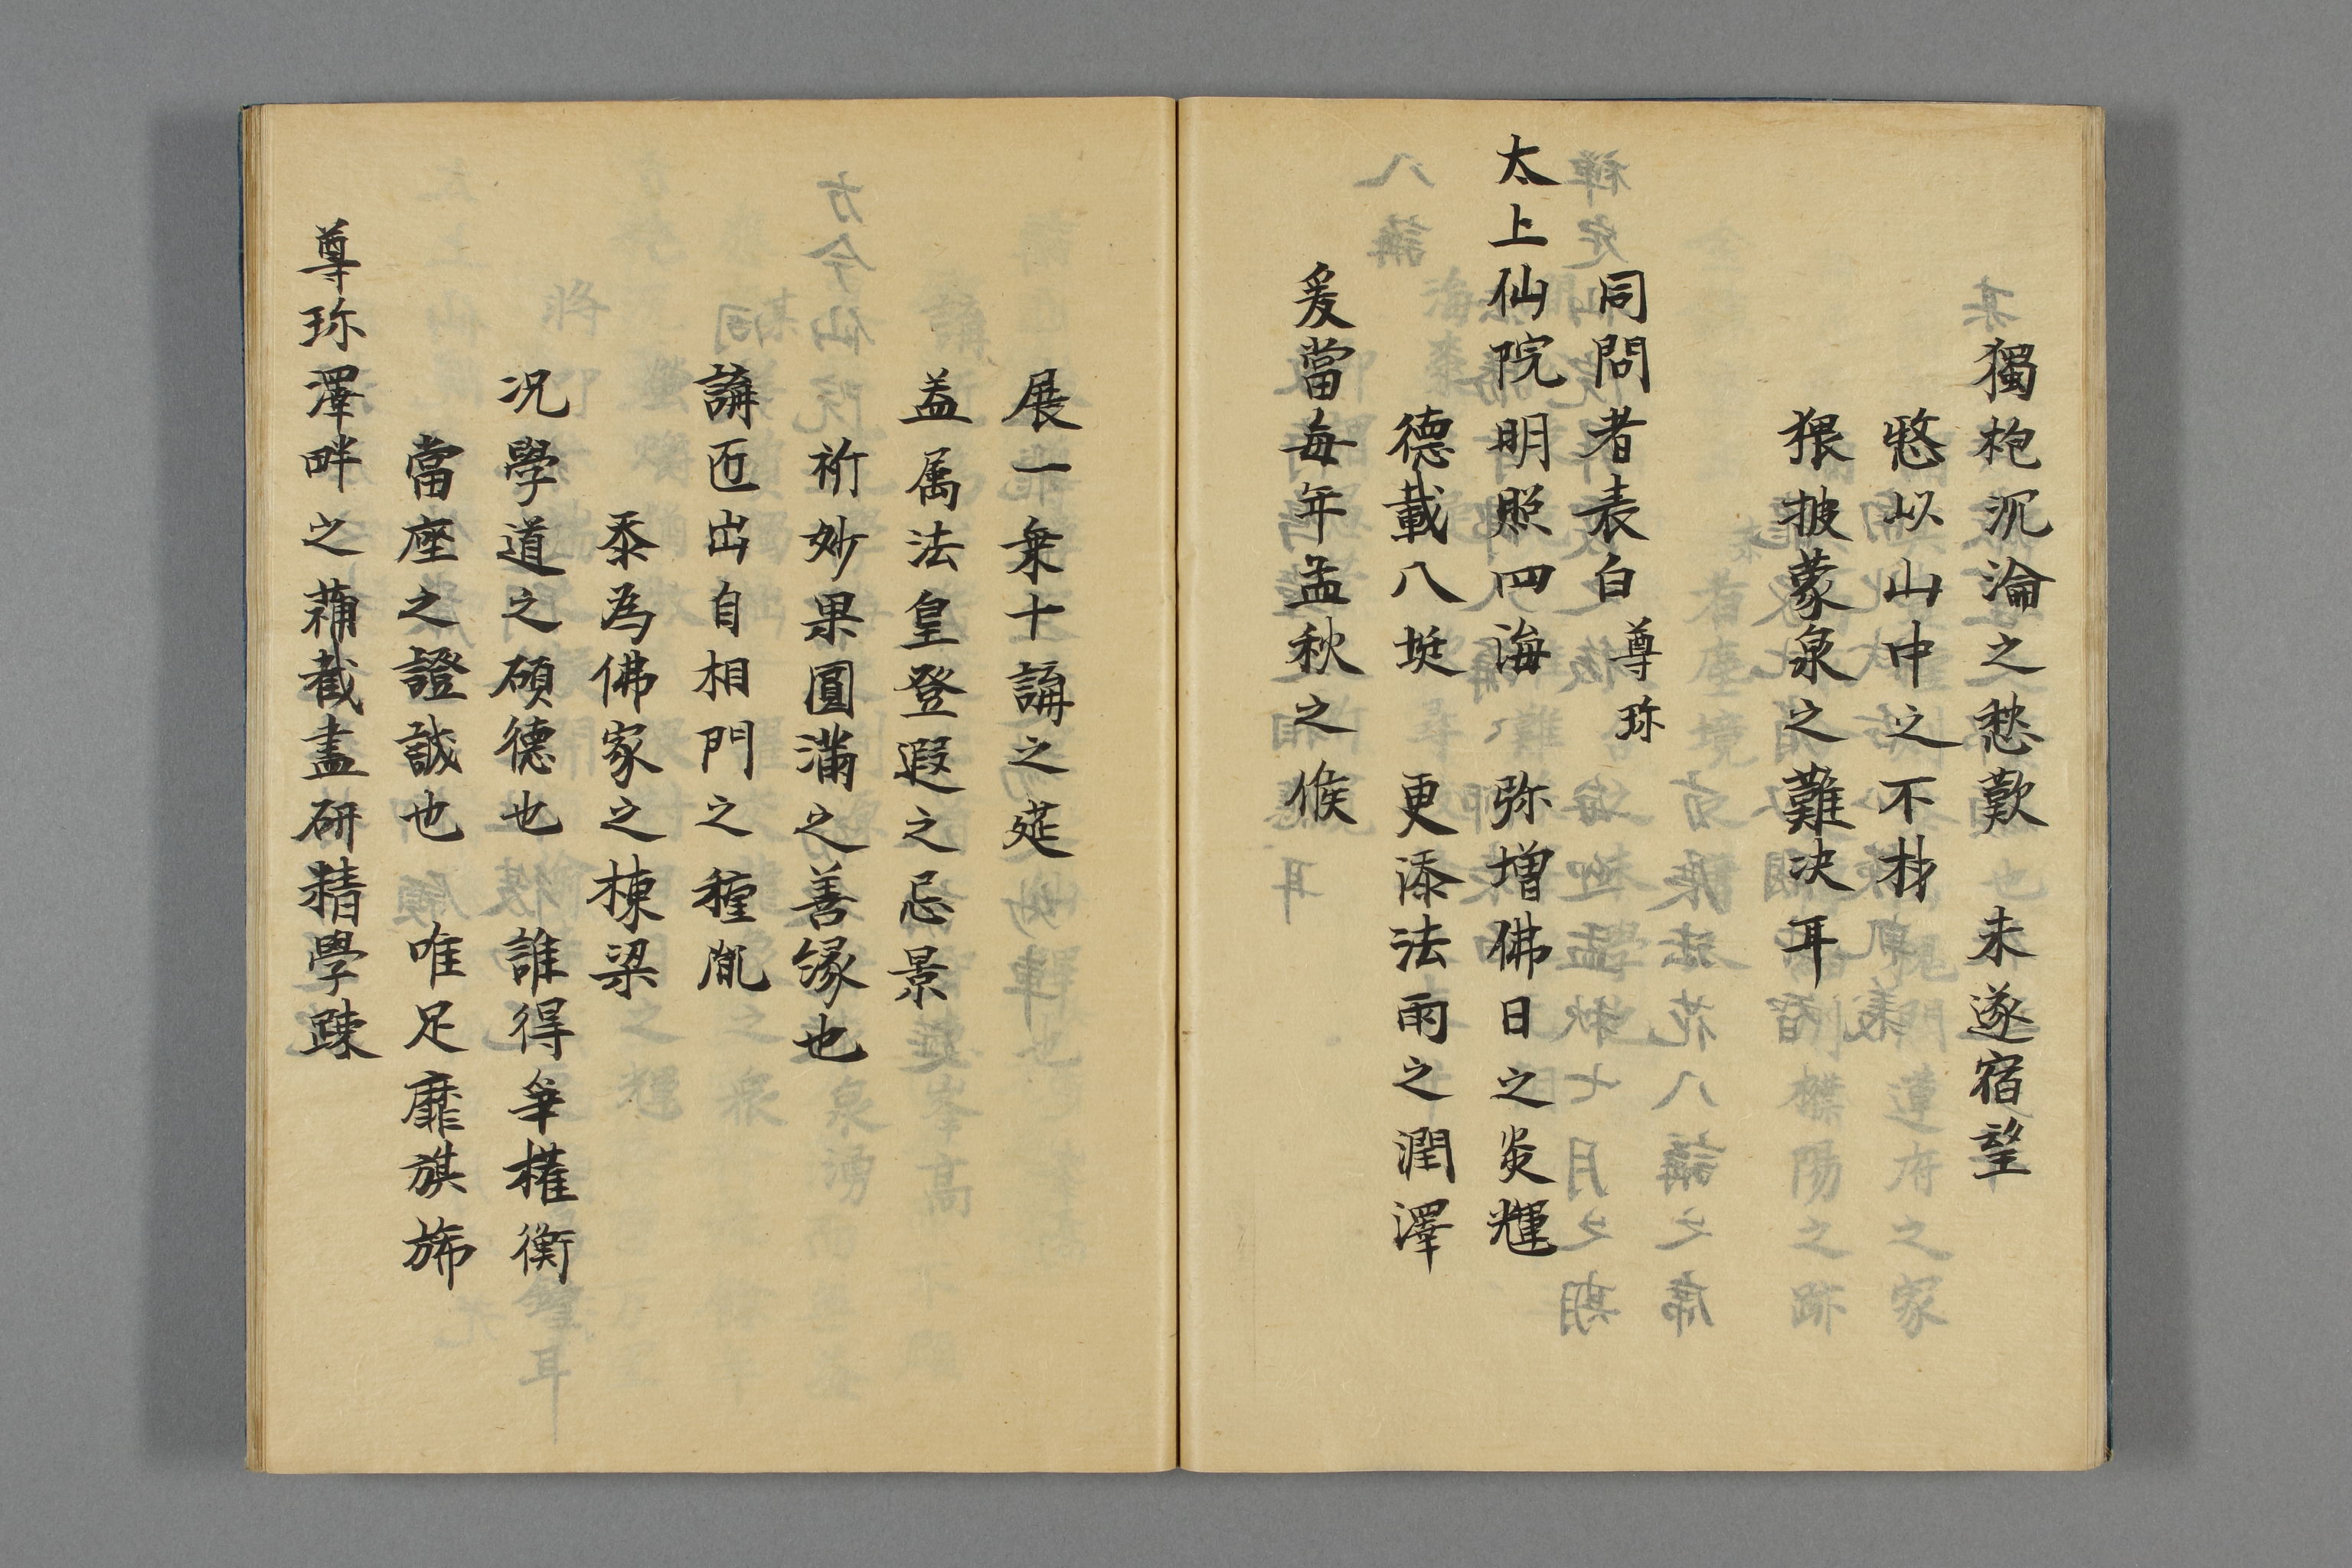 獨抱沉淪之愁歎 未遂宿望
愍以山中之不材
猥披蒙泉之難决耳
同問者表白 尊珎
太上仙院明照四海 弥増佛日之炎輝
德載八埏 更添法雨之潤澤
爰當每年孟秋之候
展一乗十講之莚
盖属法皇登遐之忌景
祈妙果圓滿之善縁也
講匠出自相門之種胤
忝為佛家之棟梁
况學道之碩德也 誰得争權衡
當座之證誠也 唯足靡旗旆
尊珎澤畔之蒱截盡研精學疎